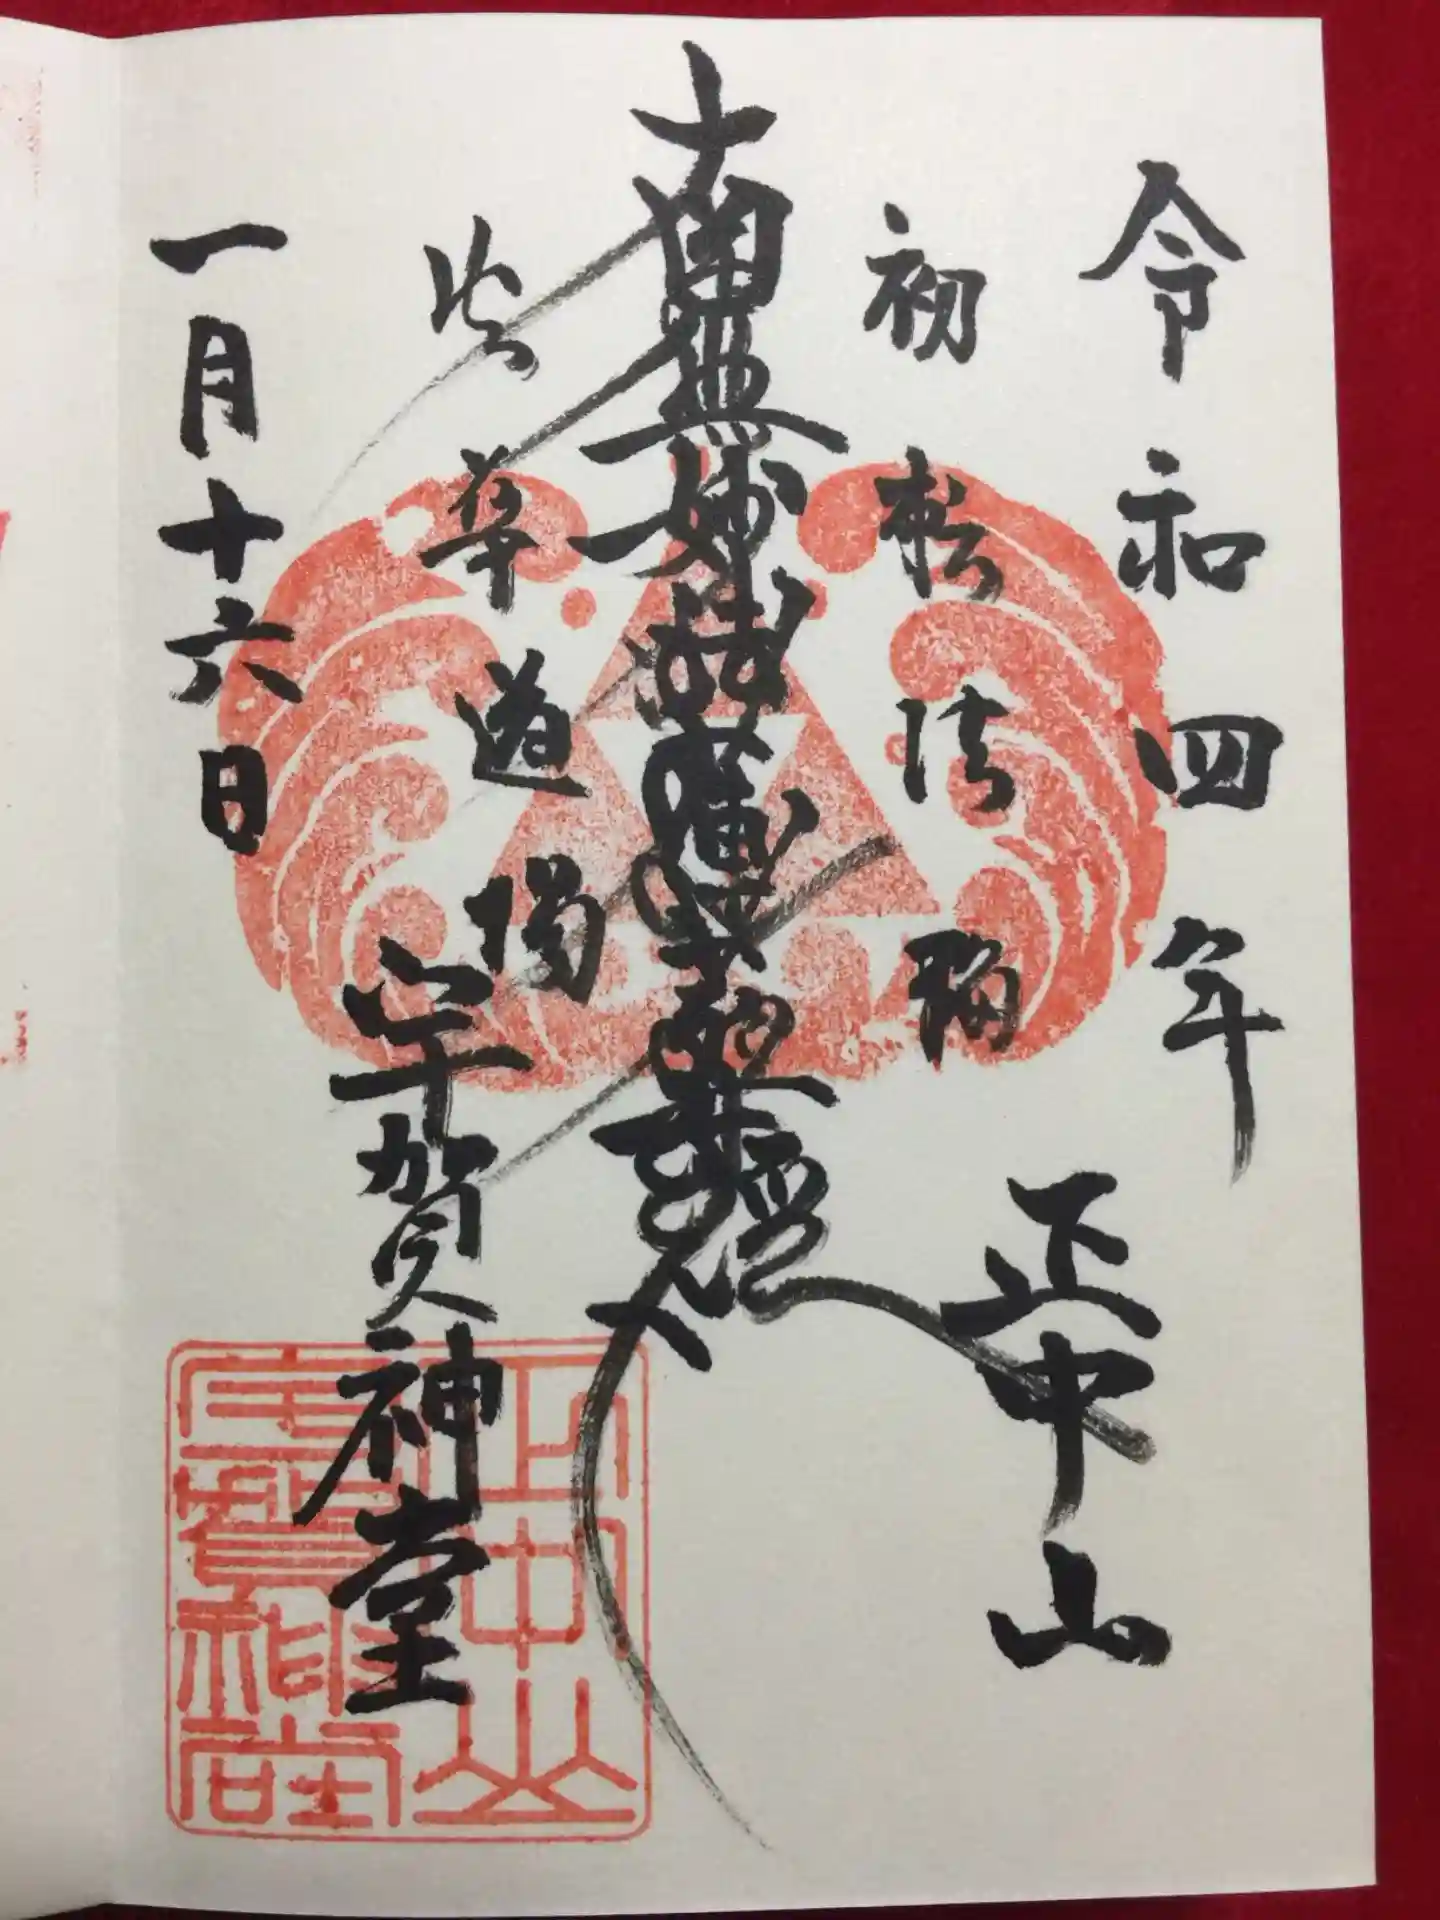 令和四年
正中山
初転法輪
南無妙法蓮華經
華道場
宇賀神堂
一月十六日
正中山
宇賀神堂